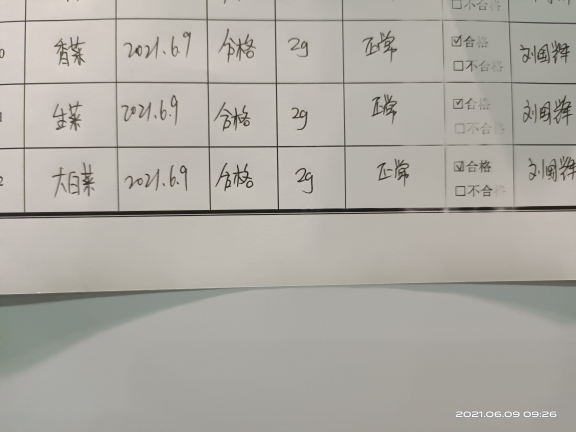 □不合格
0 香菜 2021.6.9 合格 2g 正常 ☑合格 □不合格 刘国辉
1 生菜 2021.6.9 合格 2g 正常 ☑合格 □不合格 刘国辉
2 大白菜 2021.6.9 合格 2g 正常 ☑合格 □不合格 刘国辉
2021.06.09 09:26